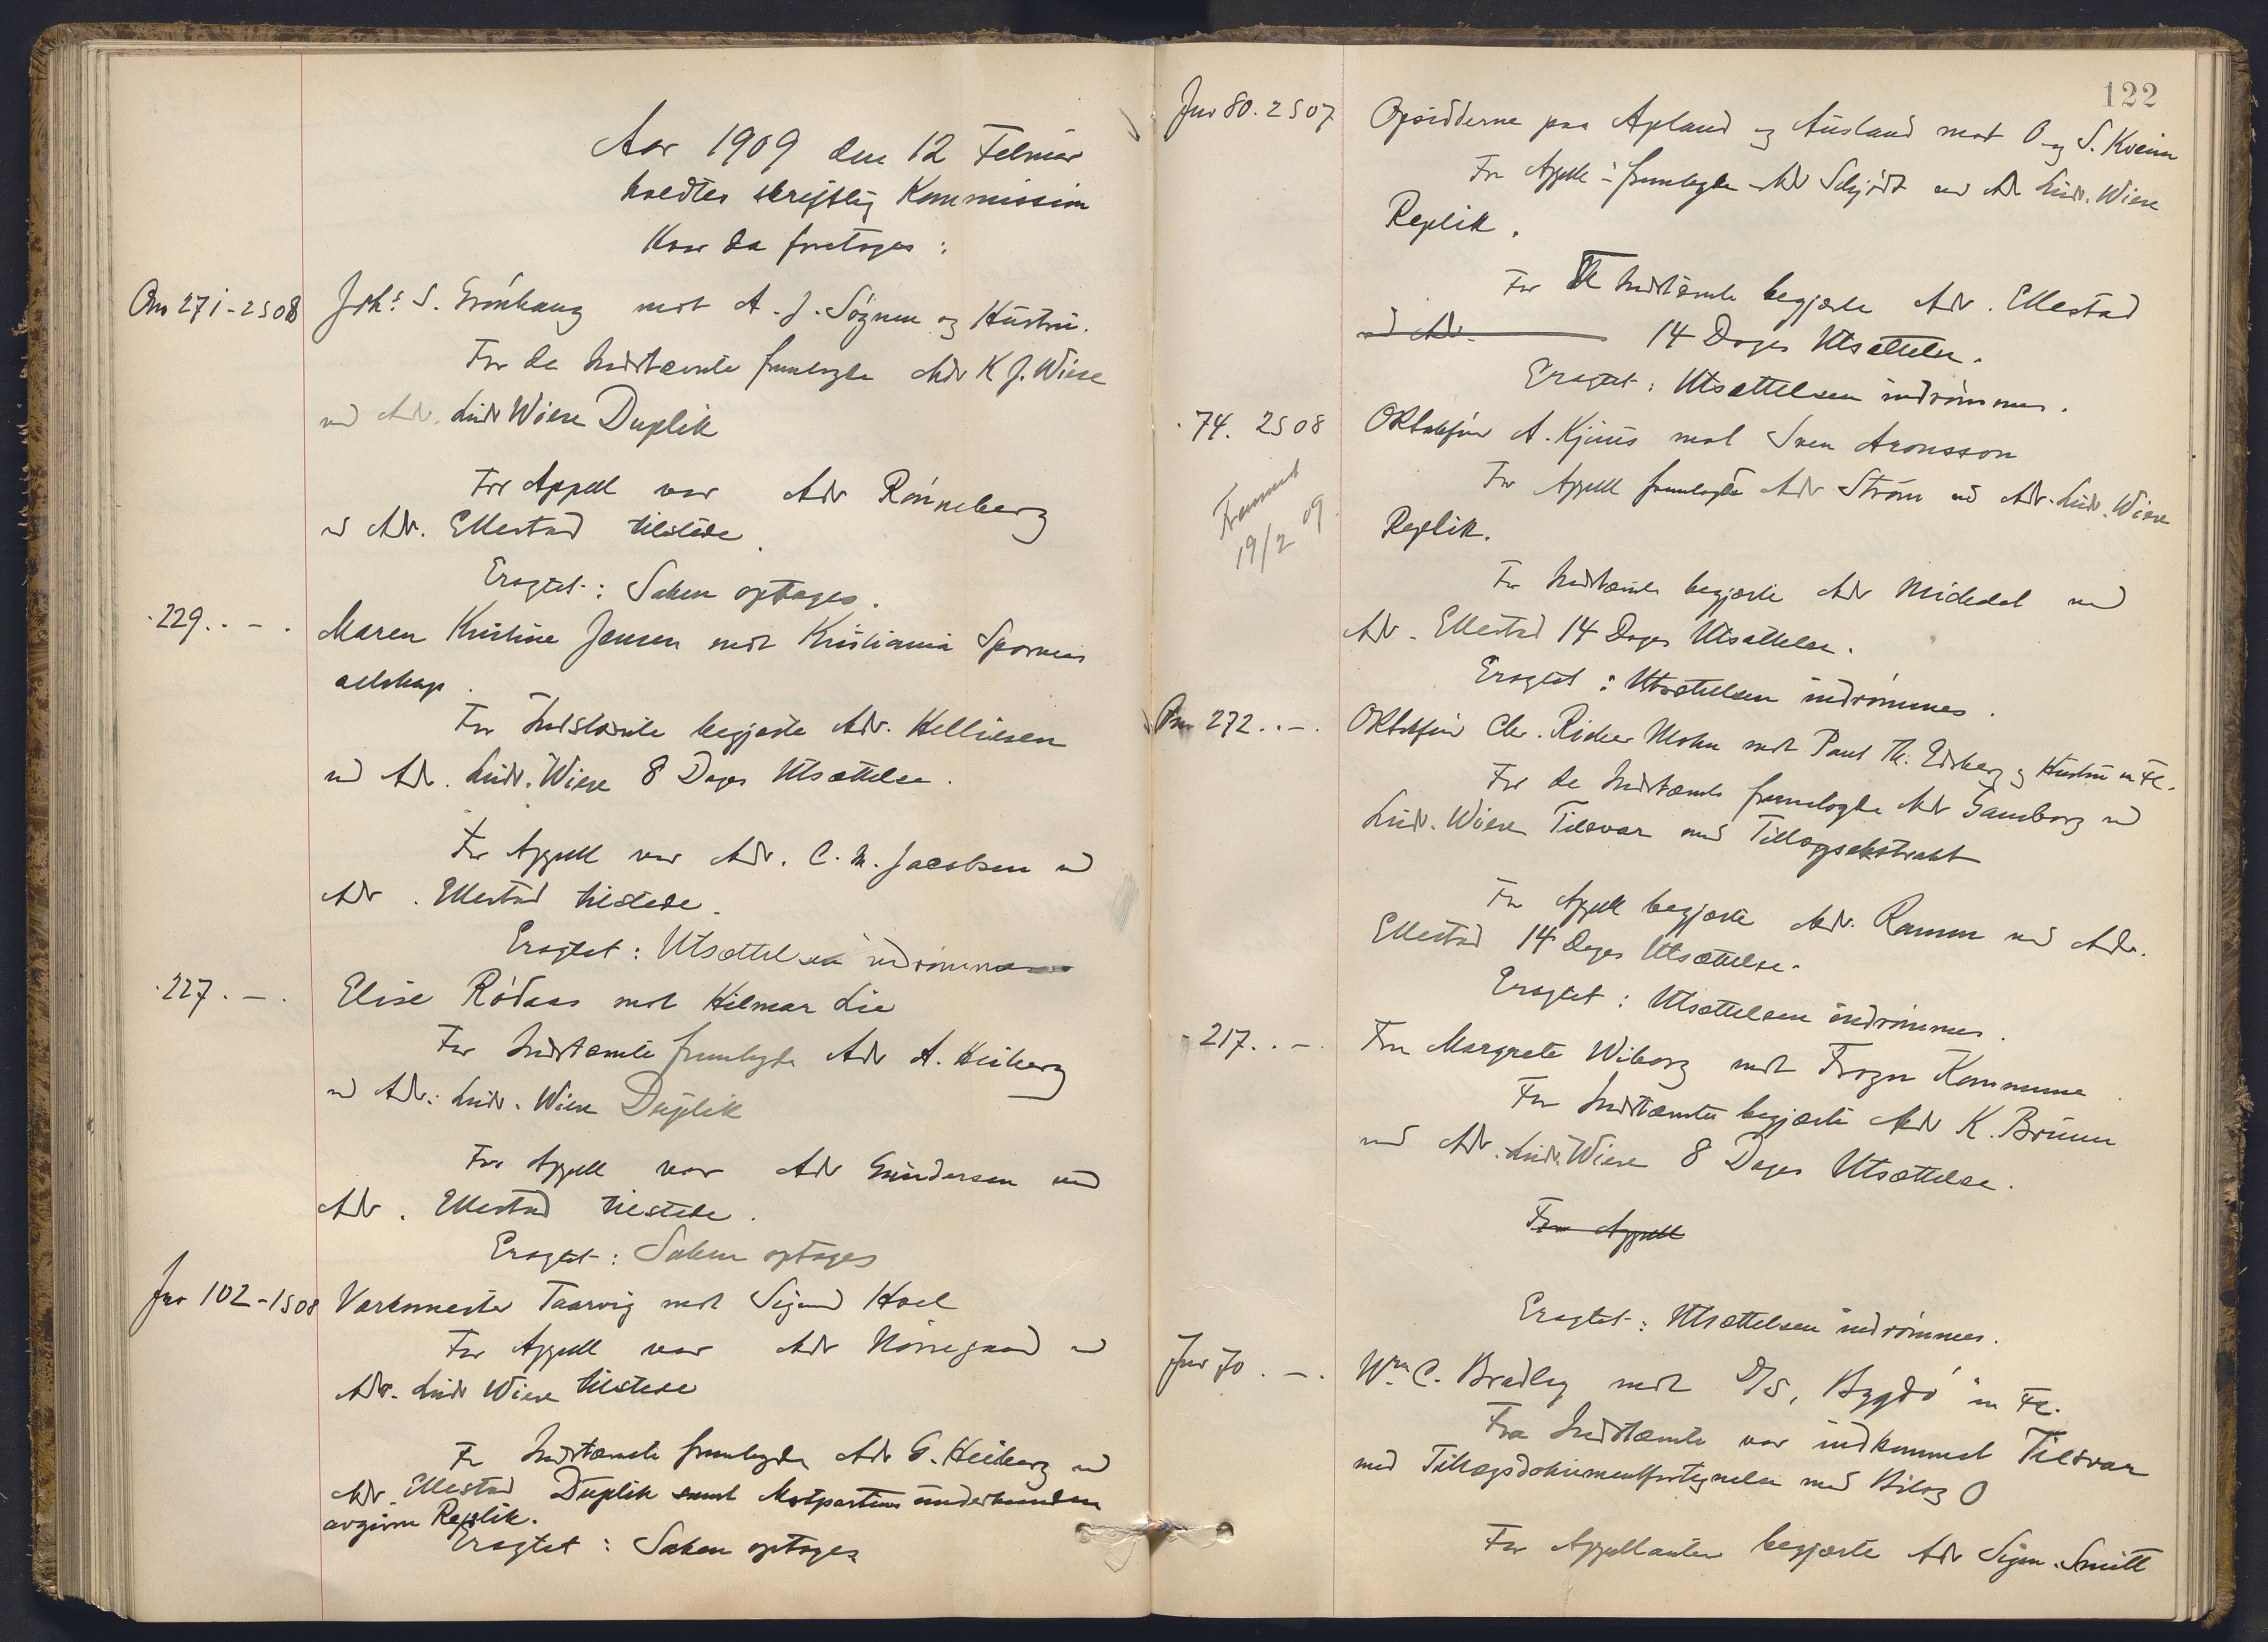 Aar 1909 den 12 Februar
holdtes skriftlig Kommission
Hvor da foretoges:
Om 271-2S08 Johs S. Grönhaug mot A. J. Sögnen og Hustru.
For de Indstævnte fremlagde Adv K J. Wiese
ved Adv. Ludv Wiese Duplik
For Appell var Adv Rönneberg
ved Adv. Ellestad tilstede.
Eragtet: Saken optages.
·229..–. Maren Kristine Jensen mot Kristiania Sporveis
aelskap.
For Indstævnte begjærte Adv. Helliesen
ved Adv. Ludv. Wiese 8 Dages Utsættelse.
For Appell var Adv. C. M. Jacobsen ved
Adv. Ellestad tilstede.
Eragtet: Utsættelsen indrömmes
·227.–. Elise Rödaas mot Hilmar Lie
For Indstævnte fremlagde Adv A. Heiberg
ved Adv. Ludv. Wiese Duplik
For Appell var Adv Gundersen ved
Adv. Ellestad tilstede.
Eragtet: Saken optages
Jnv 102-1S08 Værksmester Taarvig mot Sigurd Hoel
For Appell var Adv Nörregaard ved
Adv. Ludv Wiese tilstede
For Indstævnte fremlagde Adv G. Heiberg ved
Adv. Ellestad Duplik samt Motpartens underhaanden
avgivne Replik.
Eragtet: Saken optages
122
Jnv 80. 2S07 Opsidderne paa Apland og Ausland mot O og S. Kveim
For Appell fremlagde Adv Schjödt ved Adv Ludv. Wiese
Replik.
For Indstævnte begjærte Adv. Ellestad
ved Adv. 14 Dages Utsættelse.
Eragtet: Utsættelsen indrömmes.
·74. 2S08 ORSakförer A. Kjuus mot Sven Aronsson
For Appell fremlagde Adv Ström ved Adv. Ludv. Wiese
Replik.
19/2 09
For Indstævnte begjærte Adv Midedal ved
Adv. Ellestad 14 Dages Utsættelse.
Eragtet: Utsættelsen indrömmes.
Om 272..–. ORSakförer Chr. Ricker Mohn mot Paul Th. Edsberg og Hustru m Fl.
For de Indstævnte fremlagde Adv Gamborg ved
Ludv. Wiese Tilsvar med Tillægsekstrakt
For Appell begjærte Adv. Ramm ved Adv.
Ellestad 14 Dages Utsættelse.
Eragtet: Utsættelsen indrömmes.
·217..–. Fru Margrete Wiborg mot Frogn Kommune
For Indstævnte begjærte Adv K. Bruun
ved Adv. Ludv. Wiese 8 Dages Utsættelse.
For Appell
Eragtet: Utsættelsen indrömmes.
Jnv 70.–. Wm C. Bradley mot D/S „Bygdö" m Fl.
Fra Indstævnte var indkommet Tilsvar
med Tillægsdokumentfortegnelse med Bilag O
For Appellanten begjærte Adv Sigm. Smitt